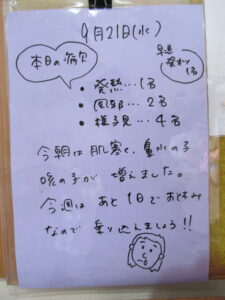 9月21日(水)
本日の病欠
早退
発熱
1名
・発熱…1名
・風邪…2名
・様子見…4名
今朝は肌寒く、鼻水の子
咳の子が増えました。
今週はあと1日でお休み
なので乗り込えましょう!!